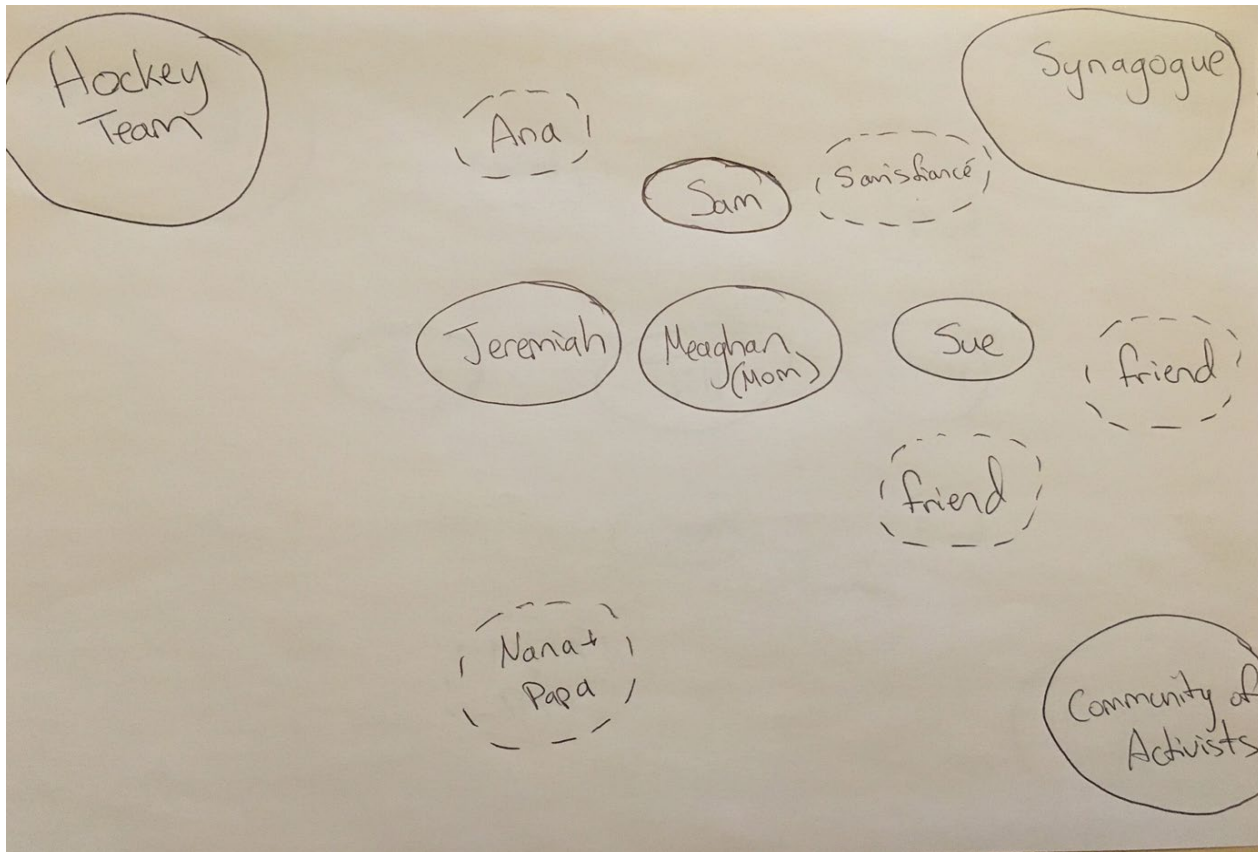 Hockey
Team
Synagogue
Ana
Sam
Sam's fiancé
Jeremiah
Meaghan
(Mom)
Sue
friend
friend
Nana +
Papa
Community of
Activists